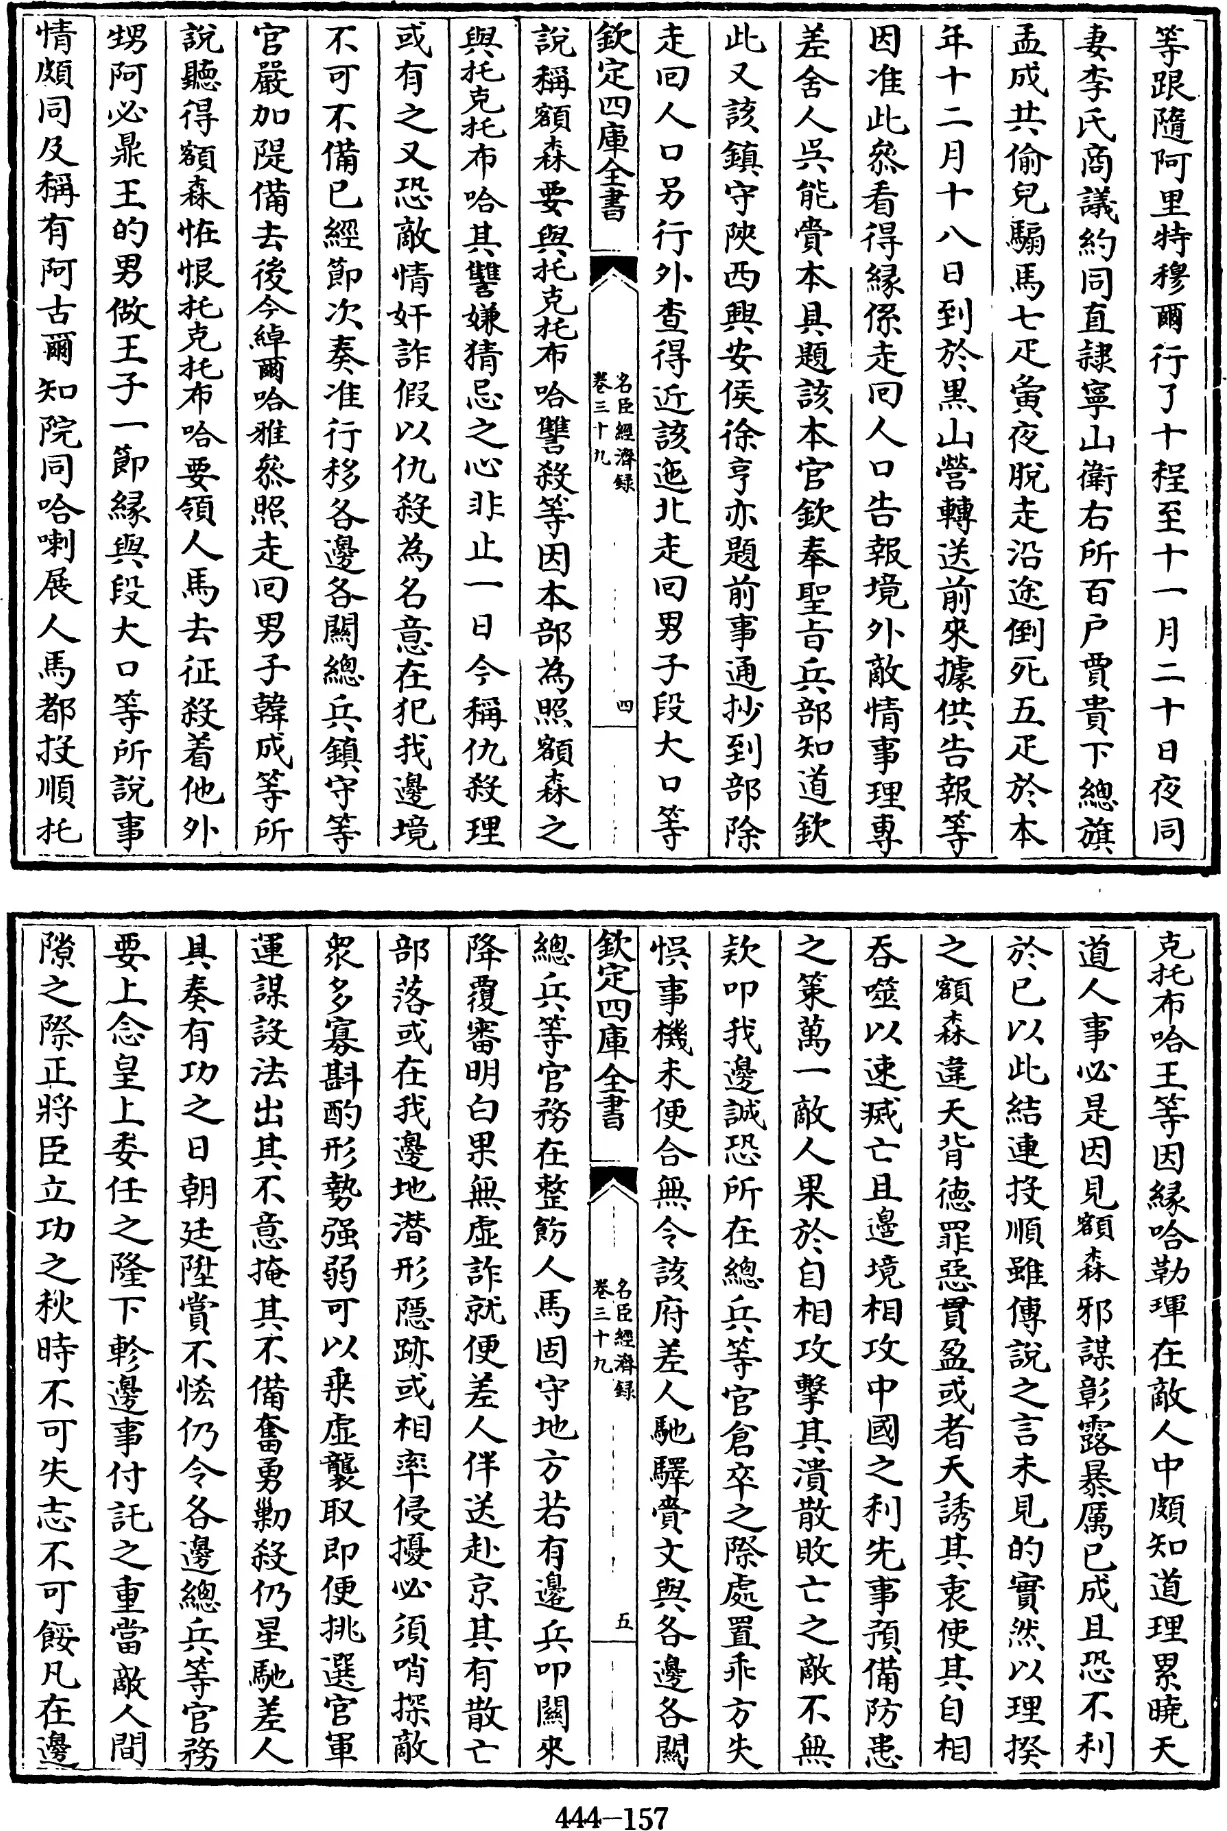 等跟隨阿里特穆爾行了十程至十一月二十日夜同
妻李氏商議約同直隷寧山衛右所百户賈貴下總旗
孟成共偷兒騸馬七疋黃夜脱走沿途倒死五疋於本
年十二月十八日到於黑山營轉送前來據供告報等
因准此叅看得縁係走回人口告報境外敵情事理專
差舍人吳能賫本具題該本官欽奉聖旨兵部知道欽
此又該鎮守陜西興安侯徐亨亦題前事通抄到部除
走回人口另行外查得近該迤北走回男子段大口等
欽定四庫全書
名臣經濟録
卷三十九
四
說稱額森要與托克托布哈讐殺等因本部為照額森之
與托克托布哈其讐嫌猜忌之心非止一日今稱仇殺理
或有之又恐敵情奸詐假以仇殺為名意在犯我邊境
不可不備已經節次奏准行移各邊各關總兵鎮守等
官嚴加隄備去後今綽爾哈雅叅照走回男子韓成等所
說聽得額森恠恨托克托布哈要領人馬去征殺着他外
甥阿必鼐王的男做王子一節縁與段大口等所說事
情頗同及稱有阿古爾知院同哈喇展人馬都投順托
克托布哈王等因縁哈勒琿在敵人中頗知道理累曉天
道人事必是因見額森邪謀彰露暴厲已成且恐不利
於已以此結連投順雖傳說之言未見的實然以理揆
之額森違天背德罪惡貫盈或者天誘其衷使其自相
吞噬以速㓕亡且邊境相攻中國之利先事預備防患
之策萬一敵人果於自相攻擊其潰散敗亡之敵不無
欵叩我邊誠恐所在總兵等官倉卒之際處置乖方失
悞事機未便合無令該府差人馳驛賫文與各邊各關
欽定四庫全書
名臣經濟録
卷三十九
五
總兵等官務在整飭人馬固守地方若有邊兵叩關來
降覆審明白果無虛詐就便差人伴送赴京其有散亡
部落或在我邊地潜形隠跡或相率侵擾必須哨探敵
衆多寡斟酌形勢强弱可以乗虛襲取即便挑選官軍
運謀設法出其不意掩其不備奮勇勦殺仍星馳差人
具奏有功之日朝廷陞賞不恡仍令各邊總兵等官務
要上念皇上委任之隆下軫邊事付託之重當敵人間
隙之際正將臣立功之秋時不可失志不可餒凡在邊
444-157